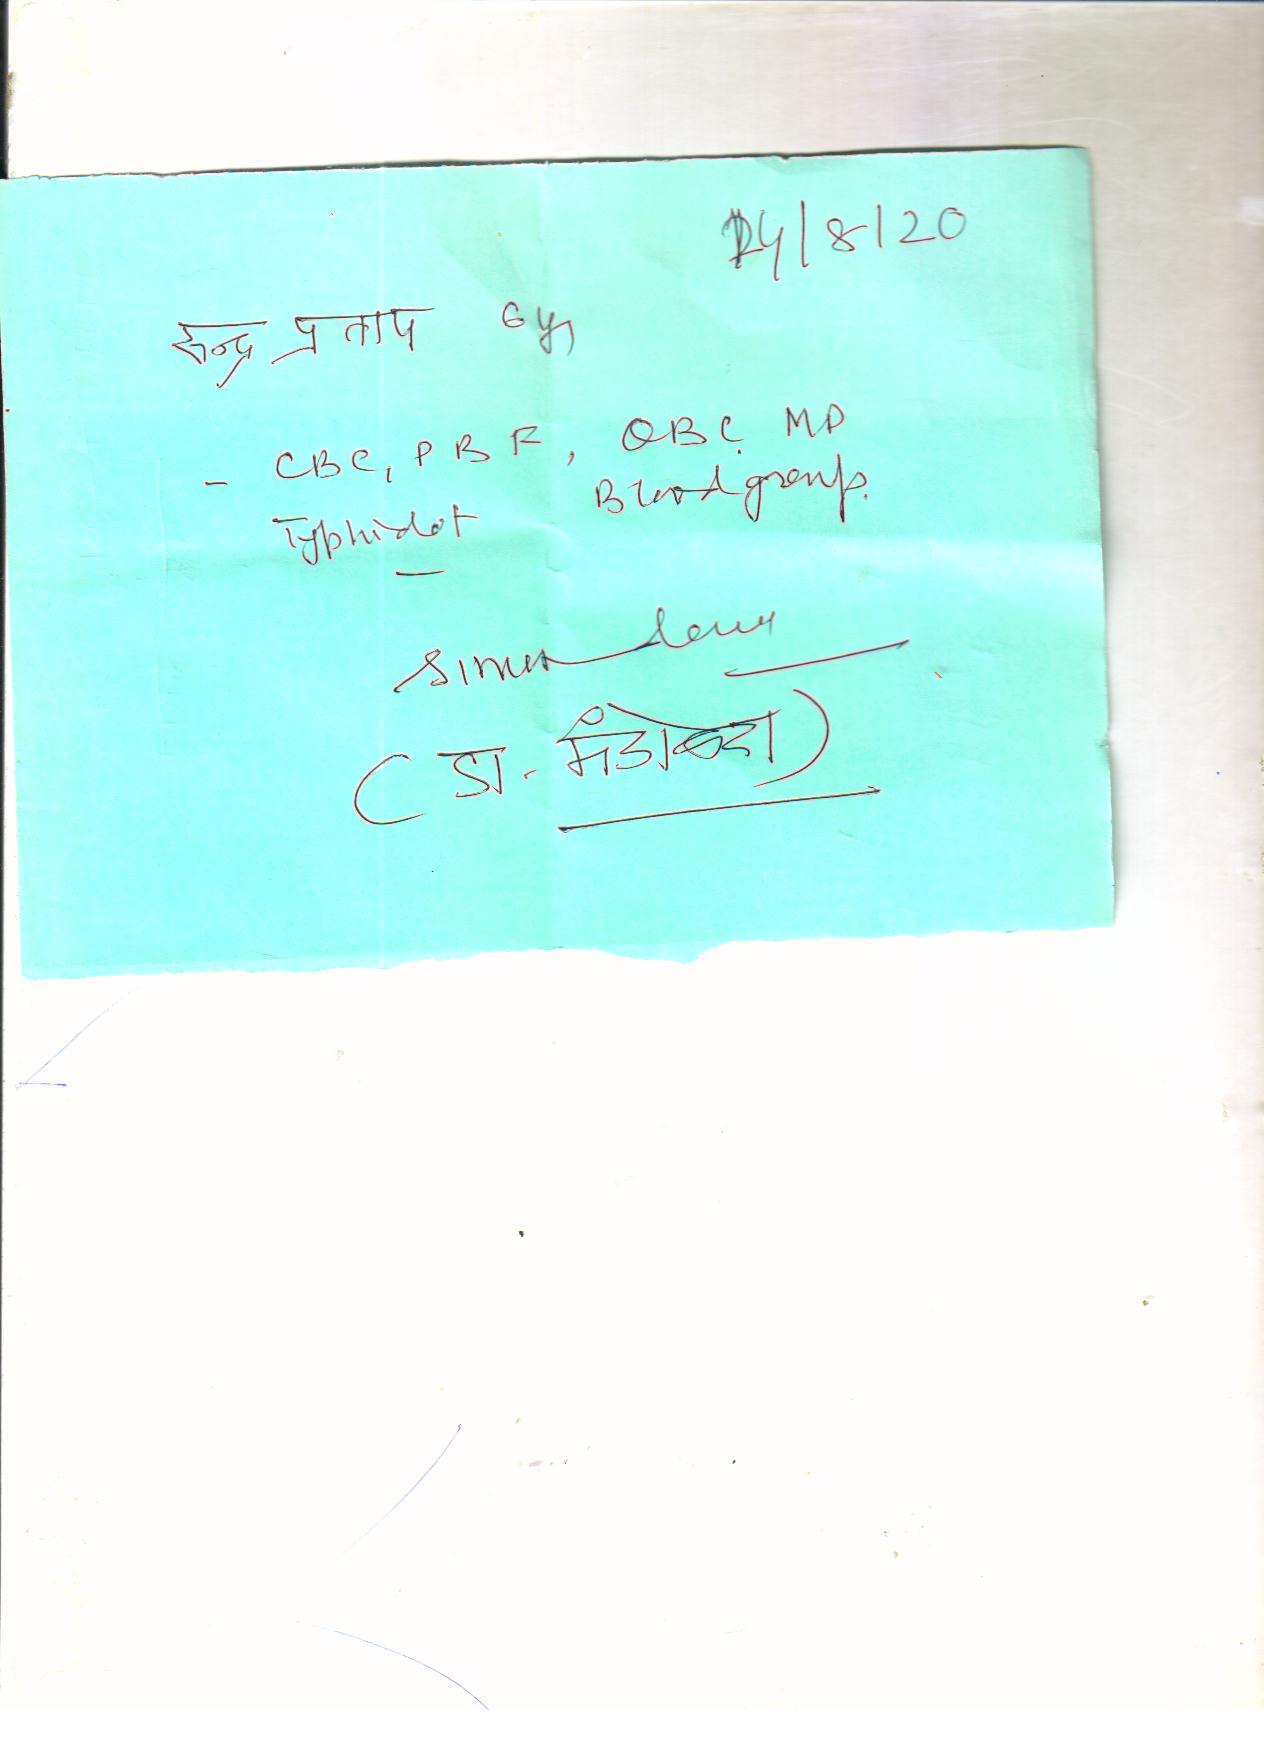 24/8/20
इन्द्र प्रताप 6 yr
- CBC, PBF, QBC MP
Typhidot Blood group.
(डा.